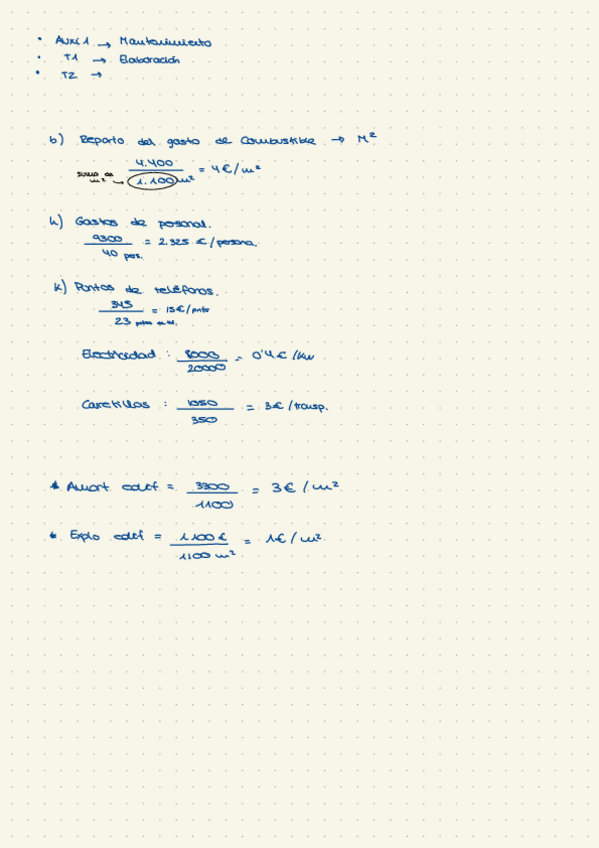 • Auxi 1 → Mantenimiento
• T1 → Elaboración
• T2 →
b) Reparto del gasto de Combustible → M²
4.400
suma de m² → 1.100 m² = 4€/m²
h) Gastos de personal.
9300
40 pers. = 2.325 €/persona.
k) Puntos de teléfonos.
345
23 = 15€/punto
Electricidad : 8000
20000 = 0'4€/kw
Carretillas : 1050
350 = 3€/transp.
* Amort edif = 3300
1100 = 3€/m²
* Explo edif = 1.100€
1100 m² = 1€/m²